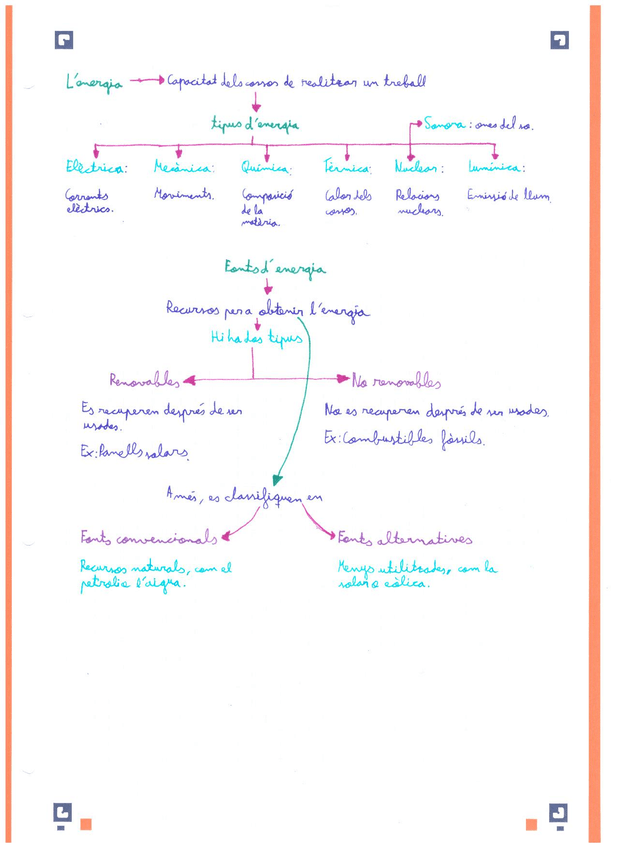 L'energia → Capacitat dels cossos de realitzar un treball
tipus d'energia
Sonora: ones del so.
Elèctrica: Mecànica: Química: Tèrmica: Nuclear: Lumínica:
Corrents Moviments. Composició Calor dels Relacions Emissió de llum.
elèctrics. de la cossos. nuclears.
matèria.
Fonts d'energia
Recursos per a obtenir l'energia
Hi ha dos tipus
Renovables No renovables
Es recuperen després de ser No es recuperen després de ser usades.
usades.
Ex: Panells solars. Ex: Combustibles fòssils.
A més, es classifiquen en
Fonts convencionals Fonts alternatives
Recursos naturals, com el Menys utilitzades, com la
petroli o l'aigua. solar o eòlica.